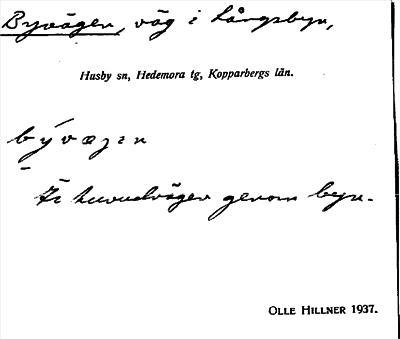 Byvägen, väg i Långsbyn,
Husby sn, Hedemora tg, Kopparbergs län.
býväzen
Är huvudvägen genom byn.
OLLE HILLNER 1937.